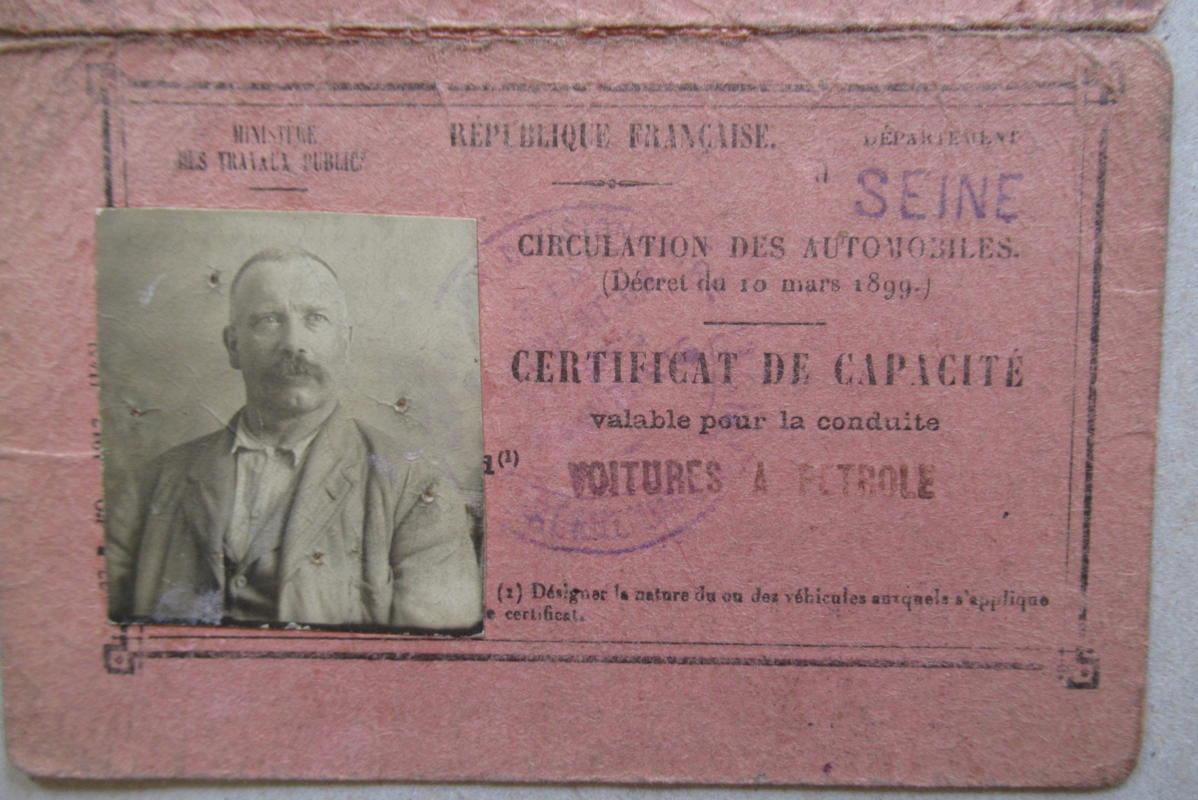 MINISTÈRE
DES TRAVAUX PUBLICS
RÉPUBLIQUE FRANÇAISE.
DÉPARTEMENT
d
SEINE
CIRCULATION DES AUTOMOBILES.
(Décret du 10 mars 1899.)
CERTIFICAT DE CAPACITÉ
valable pour la conduite
(1)
VOITURES A PETROLE
(1) Désigner la nature du ou des véhicules auxquels s'applique
e certificat.